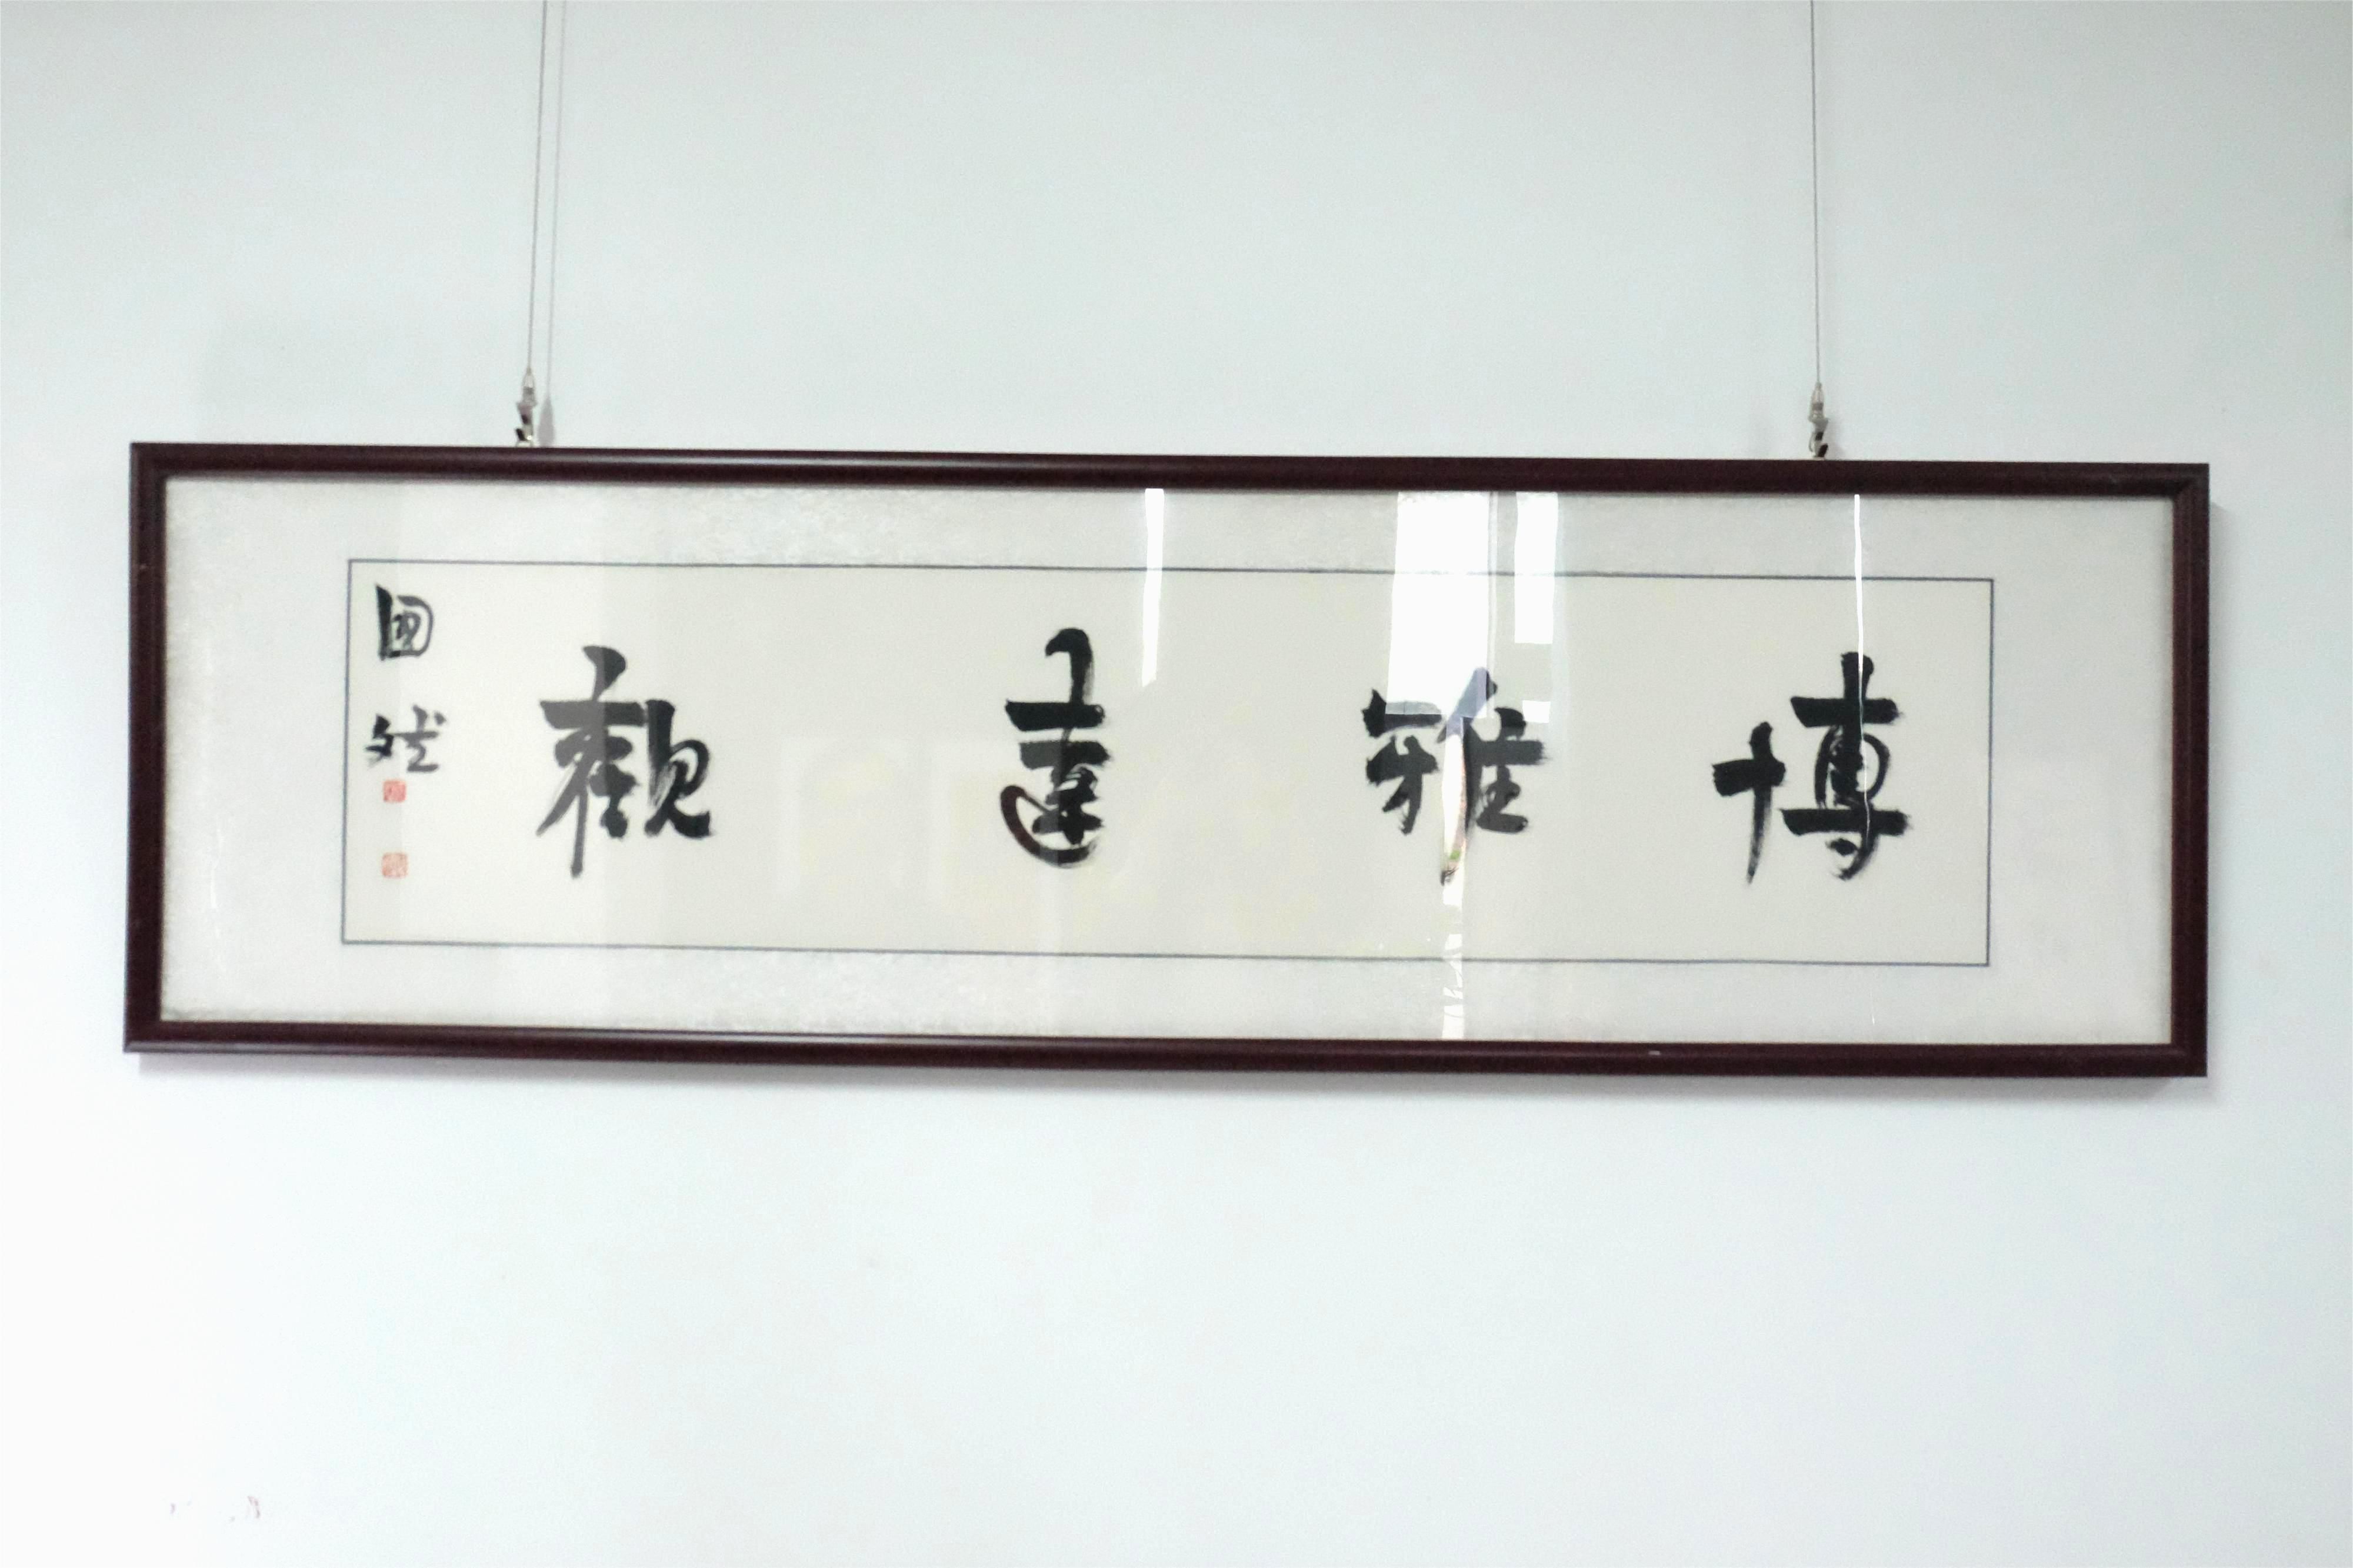 博雅達觀
國斌